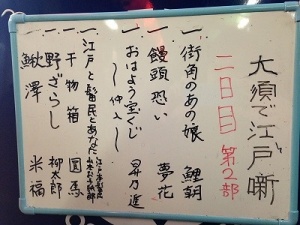 大須で江戸噺
二日目 第2部
一 街角のあの娘 鯉朝
一 饅頭恐い 夢花
一 おはよう宝くじ 昇乃進
〜仲入〜
一 江戸と髷民とあなた
一 干物箱 圓馬
一 野ざらし 柳太郎
一 鰍澤 米福